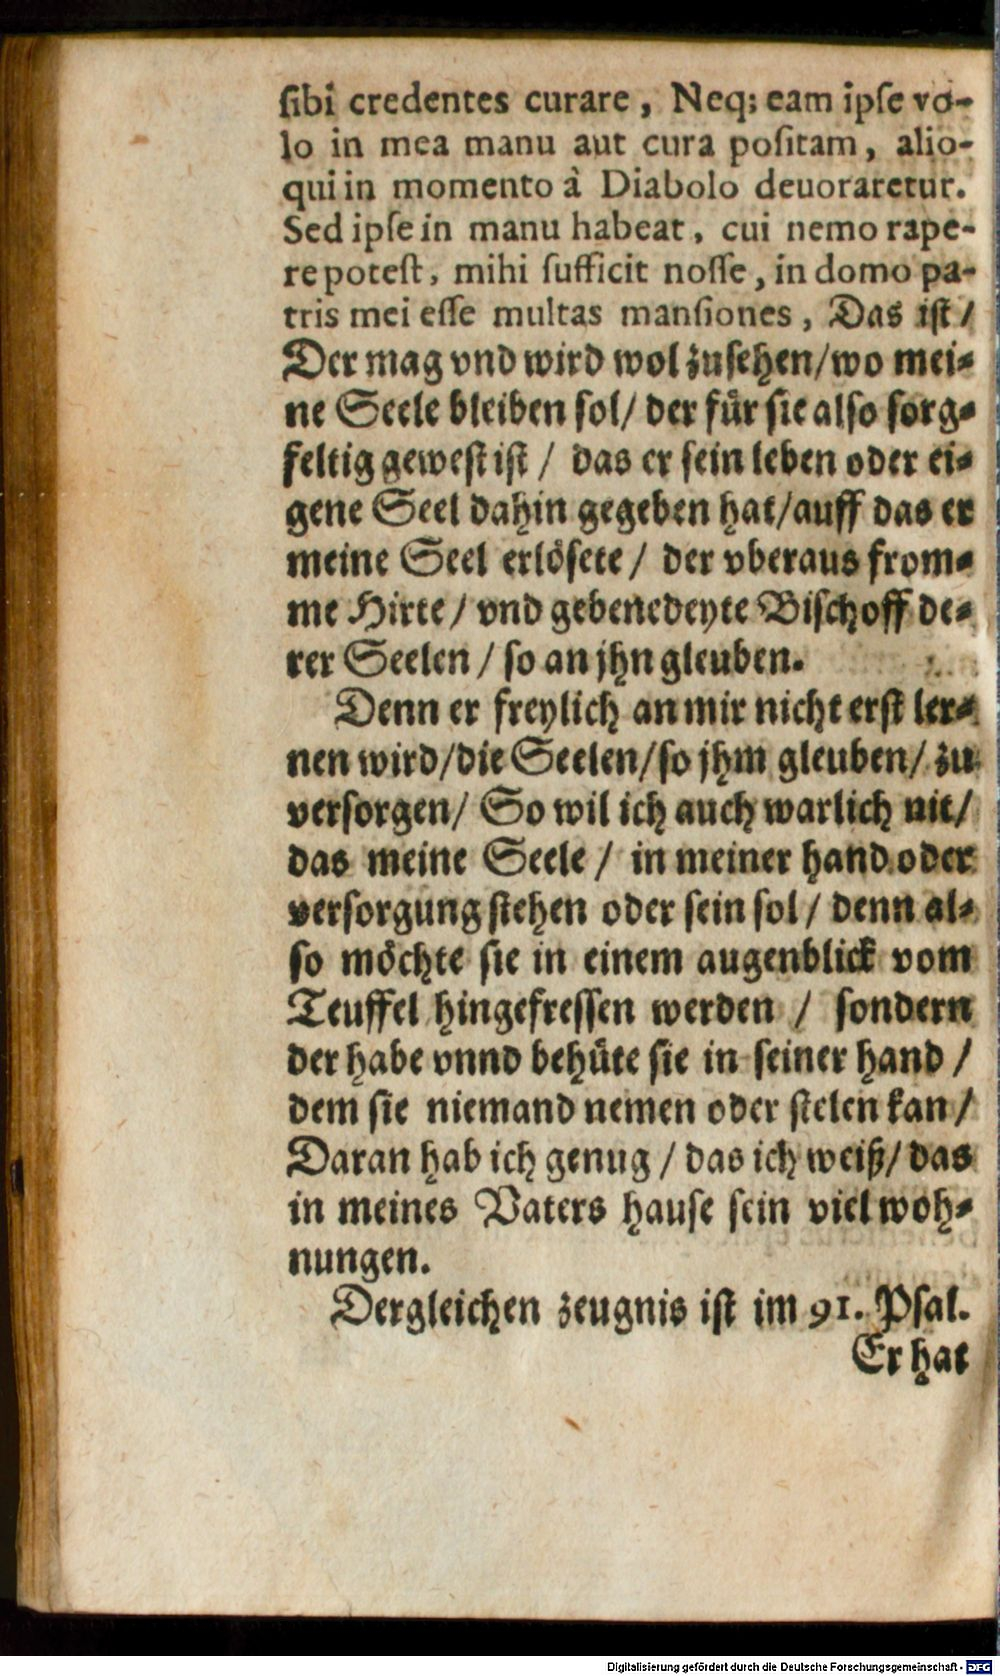 ſibi credentes curare, Neq; eam ipſe vo-
lo in mea manu aut cura poſitam, alio-
qui in momento à Diabolo deuoraretur.
Sed ipſe in manu habeat, cui nemo rape-
re poteſt, mihi ſufficit noſſe, in domo pa-
tris mei eſſe multas manſiones, Das iſt/
Der mag vnd wird wol zuſehen/wo mei-
ne Seele bleiben ſol/ der fuͤr ſie alſo ſorg-
feltig geweſt iſt / das er ſein leben oder ei-
gene Seel dahin gegeben hat/auff das er
meine Seel erloͤſete / der vberaus from-
me Hirte / vnd gebenedeyte Biſchoff de-
rer Seelen / ſo an jhn gleuben.
Denn er freylich an mir nicht erſt ler-
nen wird/die Seelen/ſo jhm gleuben/ zu
verſorgen/ So wil ich auch warlich nit/
das meine Seele / in meiner hand oder
verſorgung ſtehen oder ſein ſol / denn al-
ſo moͤchte ſie in einem augenblick vom
Teuffel hingefreſſen werden / ſondern
der habe vnnd behuͤte ſie in ſeiner hand /
dem ſie niemand nemen oder ſtelen kan /
Daran hab ich genug / das ich weiß/ das
in meines Vaters hauſe ſein viel woh-
nungen.
Dergleichen zeugnis iſt im 91. Pſal.
Er hat
Digitalisierung gefördert durch die Deutsche Forschungsgemeinschaft - DFG